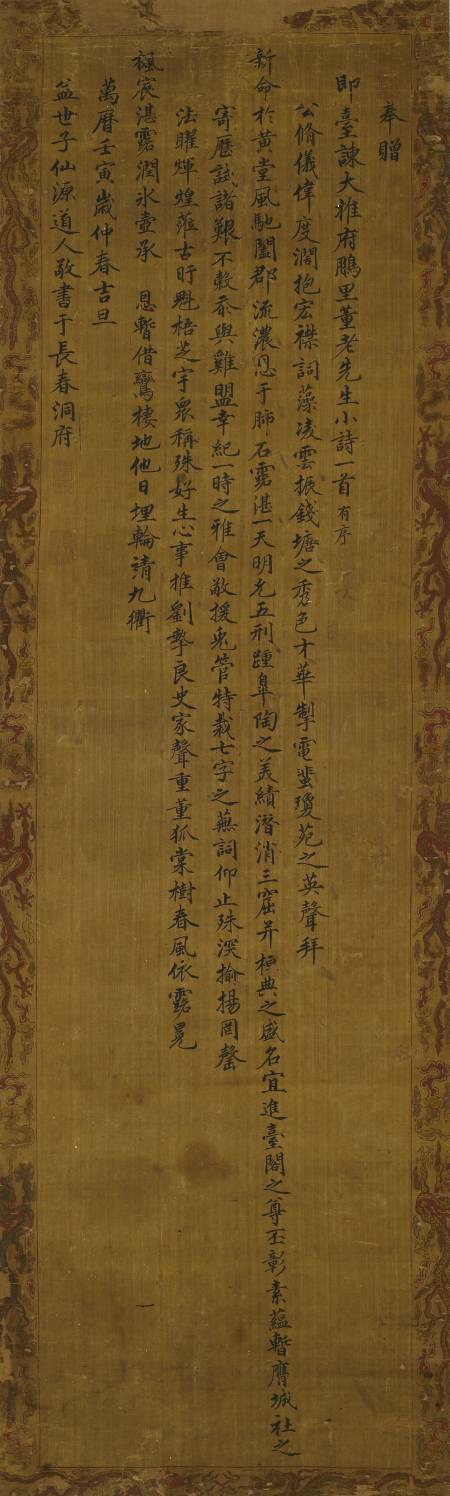 奉贈
即臺諫大雅府鵬里董老先生小詩一首有序
公脩儀偉度濶抱宏襟詞藻凌雲振錢塘之秀色才華掣電蜚瓊苑之英聲拜
新命於黃堂風馳闔郡流濃恩于肺石露湛一天明允五刑踵皐陶之美績潛消三窟并桓典之盛名宜進臺閣之尊丕彰素蘊暫膺城社之
寄歷試諸艱不穀忝與雞盟幸紀一時之雅會敬援兎管特裁七字之蕪詞仰止殊深揄揚罔罄
法曜煇煌從古盱魁梧芝宇眾稱殊好生心事推劉摯良史家聲重董狐棠樹春風依露冕
楓宸湛露潤氷壺承 恩暫借鸞棲地他日埋輪請九衢
萬曆壬寅歲仲春吉旦
益世子仙源道人敬書于長春洞府